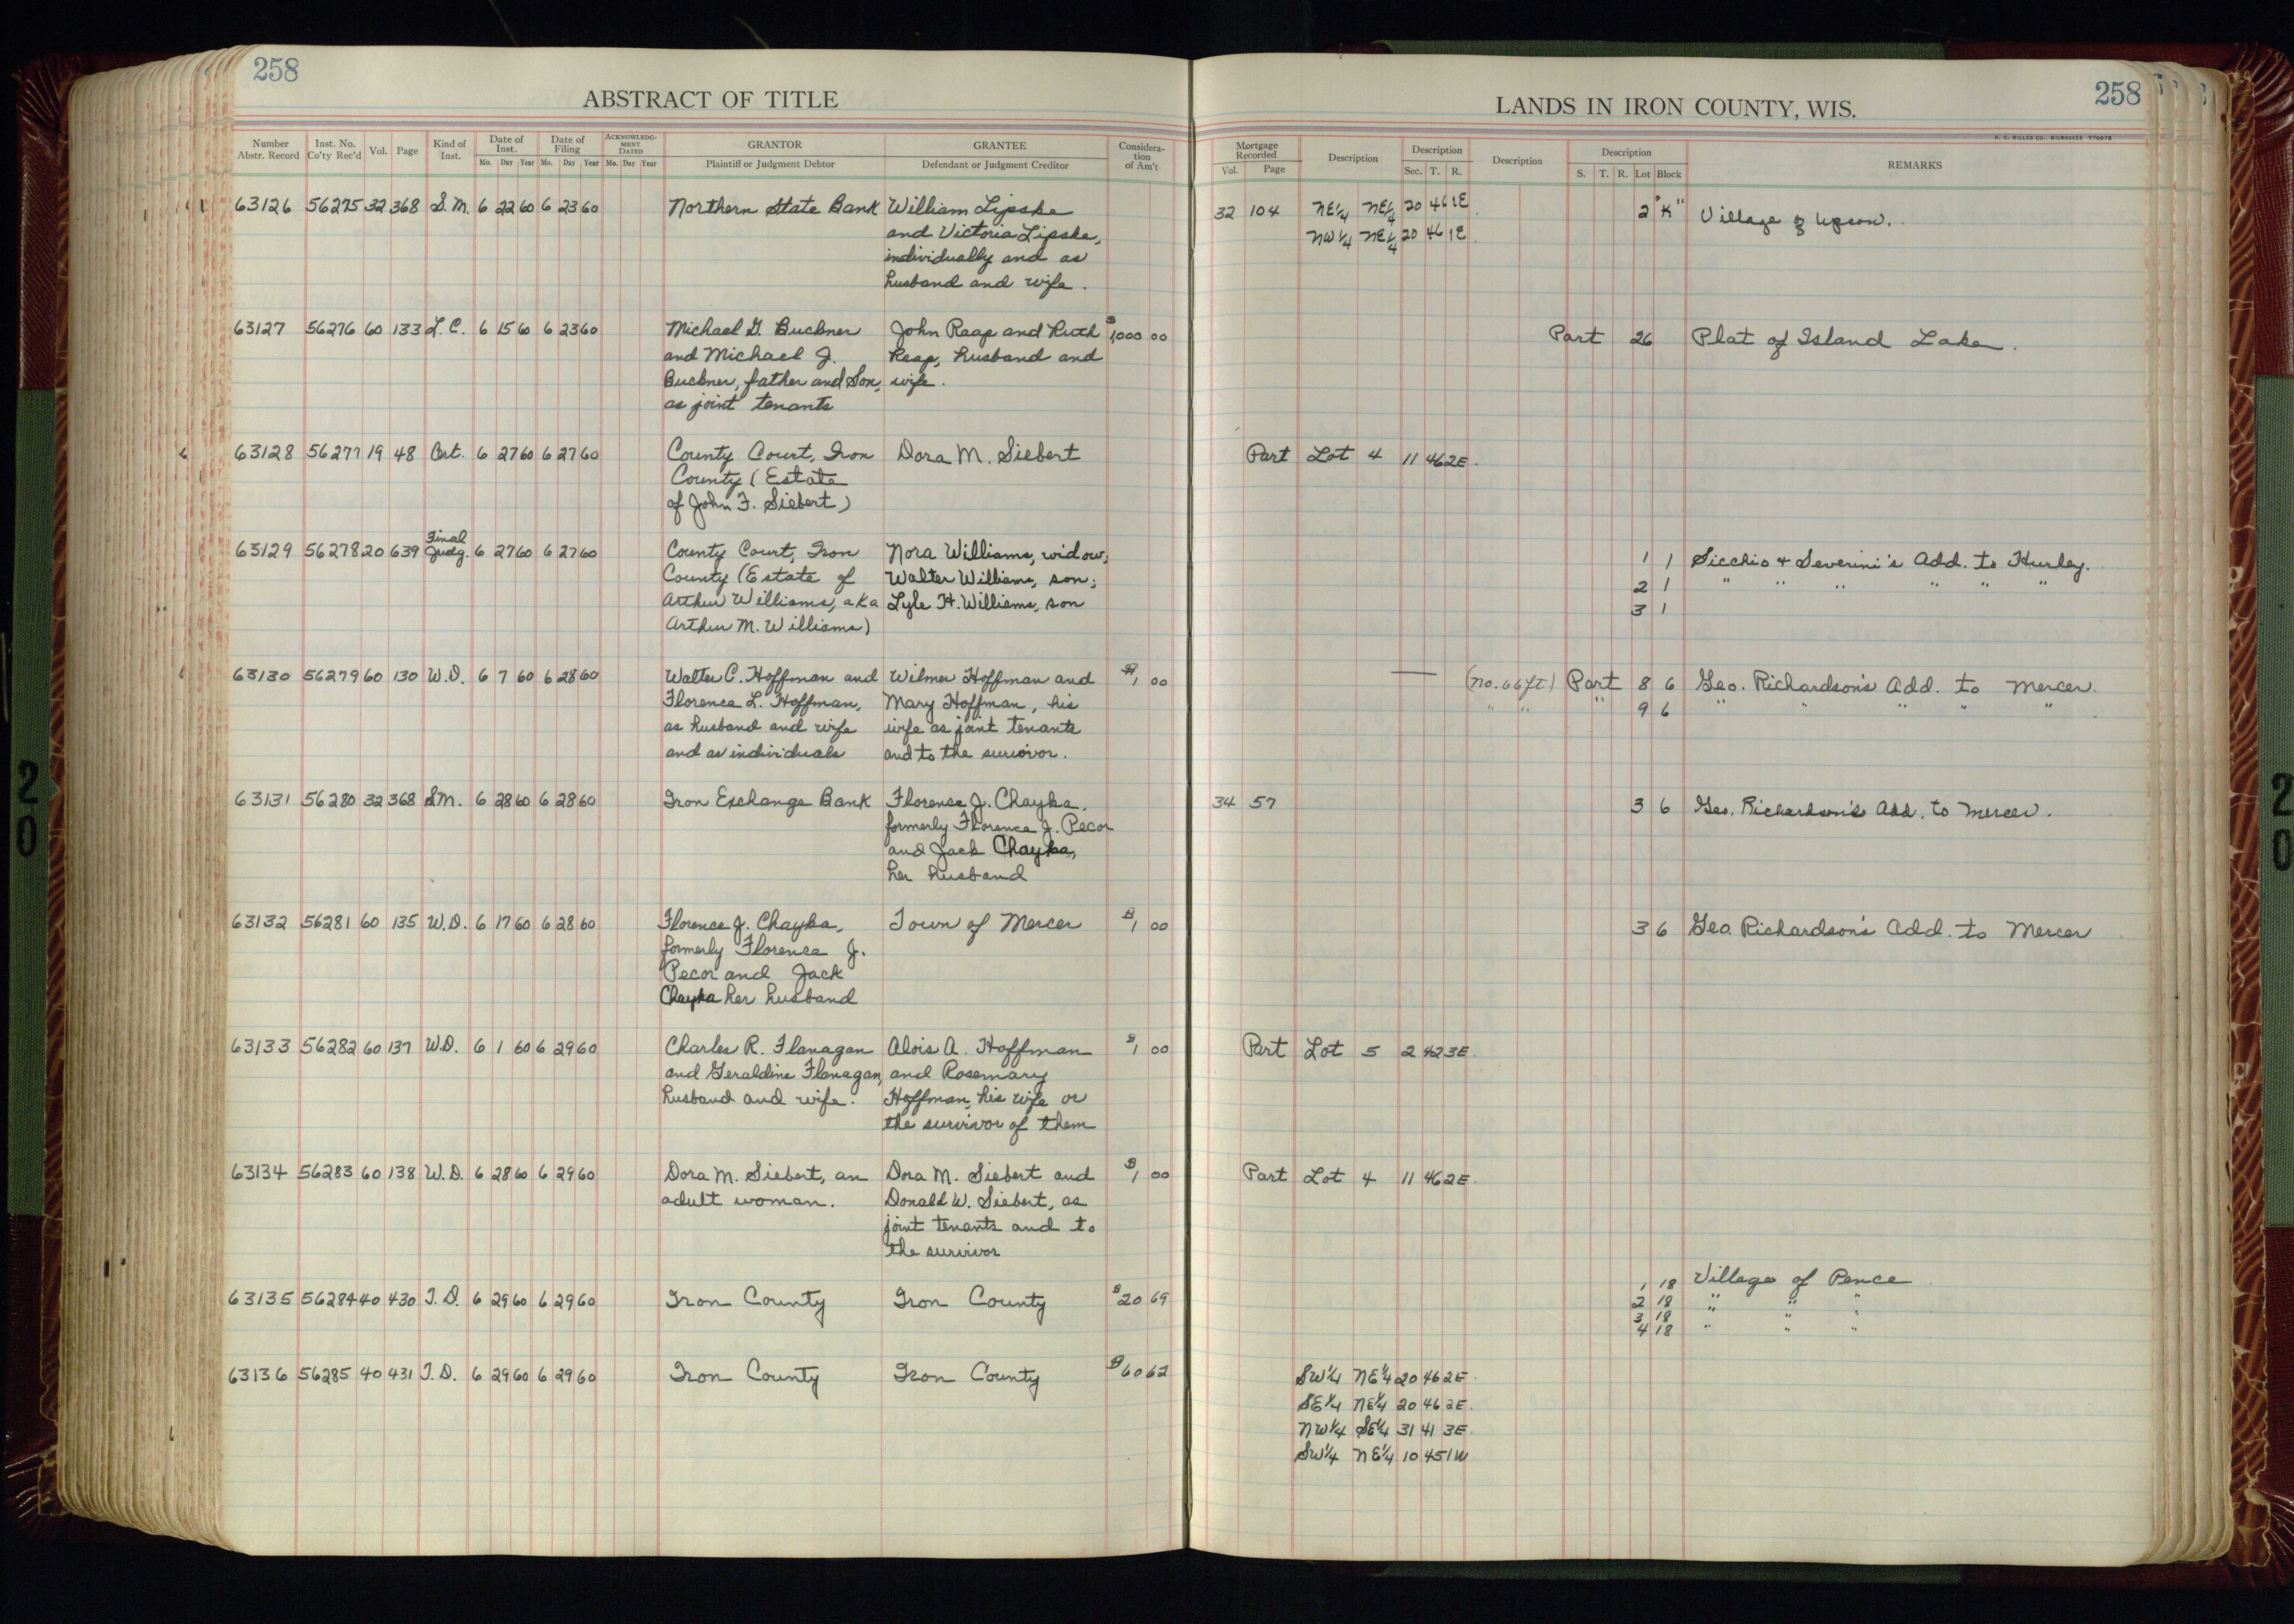 258
ABSTRACT OF TITLE
Number Abstr. Record | Inst. No. Co'ty Rec'd | Vol. | Page | Kind of Inst. | Date of Inst. Mo. Day Year | Date of Filing Mo. Day Year | ACKNOWLEDGMENT DATED Mo. Day Year | GRANTOR Plaintiff or Judgment Debtor | GRANTEE Defendant or Judgment Creditor | Consideration of Am't
63126 56275 32 368 S.M. 6 22 60 6 23 60 Northern State Bank William Lipske
and Victoria Lipske,
individually and as
husband and wife.
63127 56276 60 133 L.C. 6 15 60 6 23 60 Michael G. Buckner John Raap and Ruth $1,000 00
and Michael J. Raap, husband and
Buckner, father and Son, wife.
as joint tenants
63128 56277 19 48 Cert. 6 27 60 6 27 60 County Court, Iron Dora M. Siebert
County (Estate
of John F. Siebert)
63129 56278 20 639 Final Judg. 6 27 60 6 27 60 County Court, Iron Nora Williams, widow;
County (Estate of Walter Williams, son;
Arthur Williams, aka Lyle H. Williams, son
Arthur M. Williams)
63130 56279 60 130 W.D. 6 7 60 6 28 60 Walter C. Hoffman and Wilmer Hoffman and $1 00
Florence L. Hoffman, Mary Hoffman, his
as husband and wife wife as joint tenants
and as individuals and to the survivor.
63131 56280 32 368 S.M. 6 28 60 6 28 60 Iron Exchange Bank Florence J. Chayka,
formerly Florence J. Pecor
and Jack Chayka,
her husband
63132 56281 60 135 W.D. 6 17 60 6 28 60 Florence J. Chayka, Town of Mercer $1 00
formerly Florence J.
Pecor and Jack
Chayka her husband
63133 56282 60 137 W.D. 6 1 60 6 29 60 Charles R. Flanagan Alois A. Hoffman $1 00
and Geraldine Flanagan, and Rosemary
husband and wife. Hoffman, his wife or
the survivor of them
63134 56283 60 138 W.D. 6 28 60 6 29 60 Dora M. Siebert, an Dora M. Siebert and $1 00
adult woman. Donald W. Siebert, as
joint tenants and to
the survivor
63135 56284 40 430 T.D. 6 29 60 6 29 60 Iron County Iron County $20 69
63136 56285 40 431 T.D. 6 29 60 6 29 60 Iron County Iron County $60 62
258
LANDS IN IRON COUNTY, WIS.
H. C. MILLER CO., MILWAUKEE Y70073
Mortgage Recorded Vol. Page | Description | Description Sec. T. R. | Description | Description S. T. R. Lot Block | REMARKS
32 104 NE¼ NE¼ 20 46 1E 2 "K" Village of Upson.
NW¼ NE¼ 20 46 1E
Part 26 Plat of Island Lake.
Part Lot 4 11 46 2E.
1 1 Sicchio & Severini's Add. to Hurley.
2 1 " " " " " "
3 1
— (No. 66 ft) Part 8 6 Geo. Richardson's Add. to Mercer.
" " " 9 6 " " " " "
34 57 3 6 Geo. Richardson's Add. to Mercer.
3 6 Geo. Richardson's Add. to Mercer
Part Lot 5 2 42 3E.
Part Lot 4 11 46 2E.
1 18 Village of Pence
2 18 " " "
3 18 " " "
4 18 " " "
SW¼ NE¼ 20 46 2E.
SE¼ NE¼ 20 46 2E.
NW¼ SE¼ 31 41 3E.
SW¼ NE¼ 10 45 1W
20
20